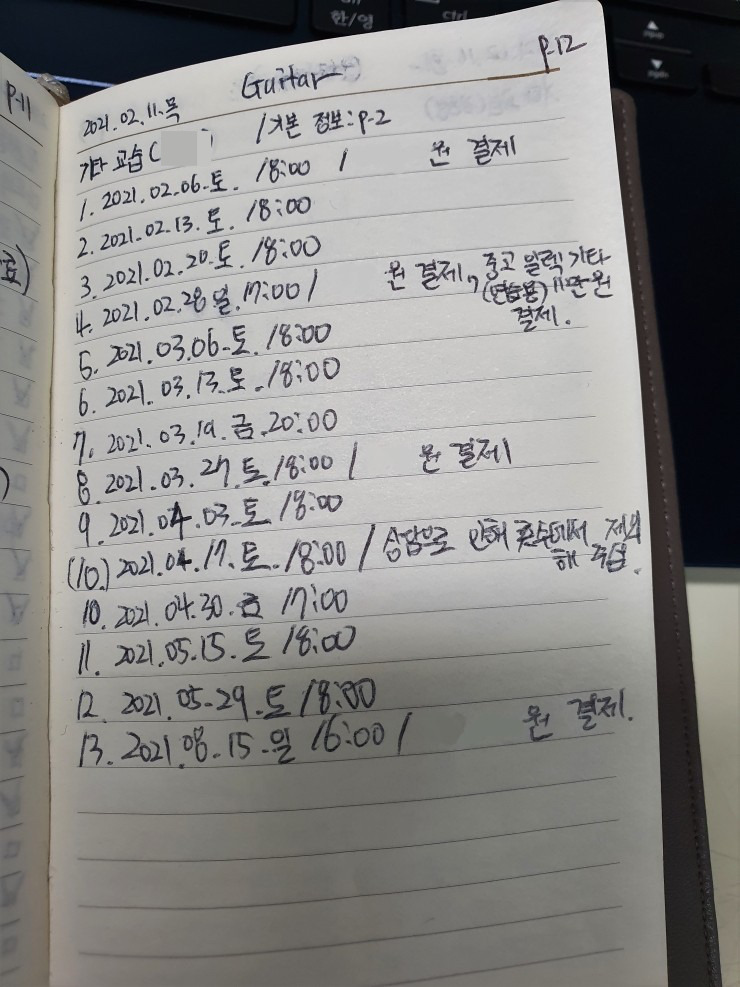 한/영
Ctrl
P-11
Guitar
P-12
2021.02.11.목
기타 교습( ) /기본 정보:P-2
1. 2021.02.06.토. 18:00 / 원 결제
2. 2021.02.13.토. 18:00
3. 2021.02.20.토. 18:00
4. 2021.02.28 일. 17:00 / 원 결제, 중고 일렉 기타
(연습용) 11만원
결제.
5. 2021.03.06.토. 18:00
6. 2021.03.13.토. 18:00
7. 2021.03.19.금.20:00
8. 2021.03.27.토. 18:00 / 원 결제
9. 2021.04.03.토. 18:00
(10.) 2021.04.17.토. 18:00 / 상담으로 인해 횟수에서 제외
해 주심.
10. 2021.04.30.금 17:00
11. 2021.05.15.토 18:00
12. 2021.05-29.토 18:00
13. 2021.08.15-일 16:00 / 원 결제.